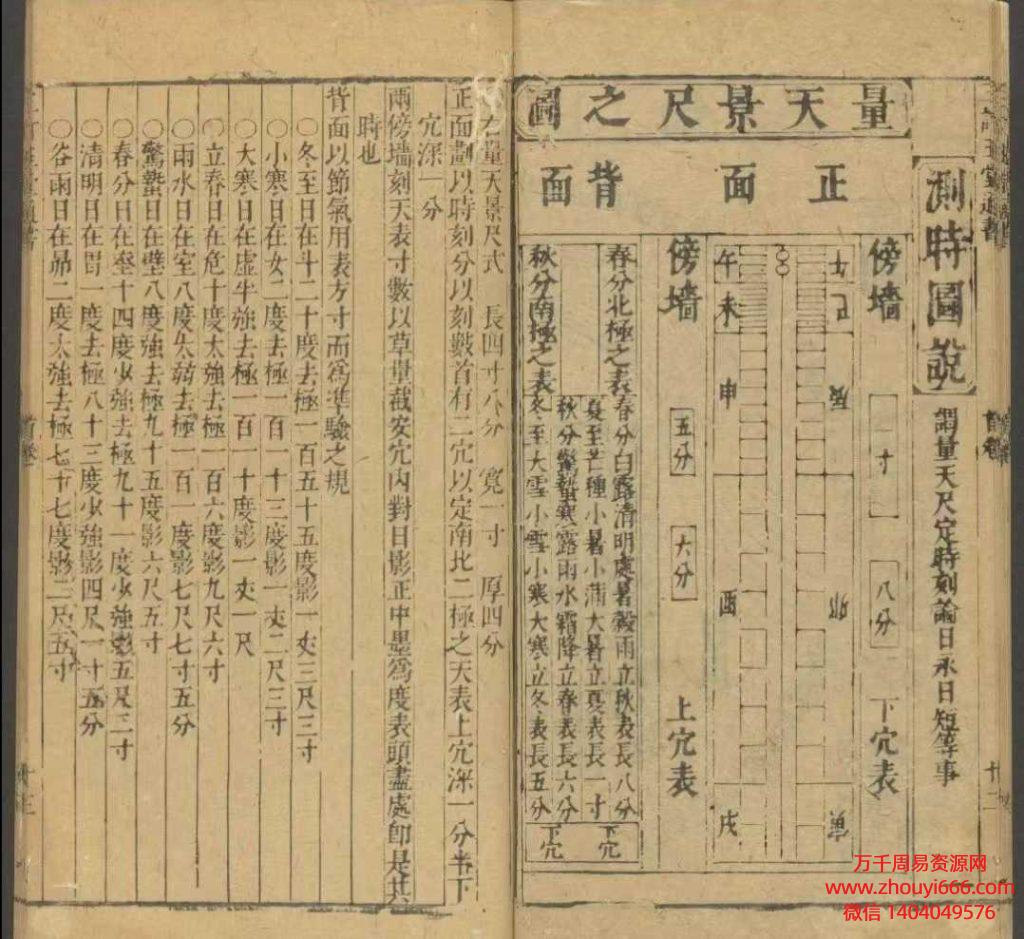 測時圖說
調量天尺定時刻論日永日短等事
量天景尺之圖
正面
背面
傍墻
一寸
八分
下宂表
午
未
申
酉
戌
傍墻
五分
六分
上宂表
春分北極之表
秋分南極之表
春分白露清明處暑穀雨立秋表長八分
夏至芒種小暑小滿大暑立夏表長一寸
秋分驚蟄寒露雨水霜降立春表長六分
冬至大雪小雪小寒大寒立冬表長五分
下宂
下宂
右量天景尺式 長四寸八分 寬一寸 厚四分
正面劃以時刻分以刻數首有二宂以定南北二極之天表上宂深一分半下
宂深一分
兩傍墻刻天表寸數以草量截安宂內對日影正中墨爲度表頭盡處卽是其
時也
背面以節氣用表方寸而爲準驗之規
〇冬至日在斗二十度去極一百五十五度影一丈三尺三寸
〇小寒日在女二度去極一百一十三度影一丈二尺三寸
〇大寒日在虛半強去極一百一十度影一丈一尺
〇立春日在危十度太強去極一百六度影九尺六寸
〇雨水日在室八度太弱去極一百一度影七尺七寸五分
〇驚蟄日在壁八度強去極九十五度影六尺五寸
〇春分日在奎十四度少強去極九十一度少強影五尺二寸
〇清明日在胃一度去極八十三度少強影四尺一寸五分
〇谷雨日在昴二度太強去極七十七度影二尺五寸
首卷
十二
万千周易资源网
www.zhouyi666.com
微信 1404049576